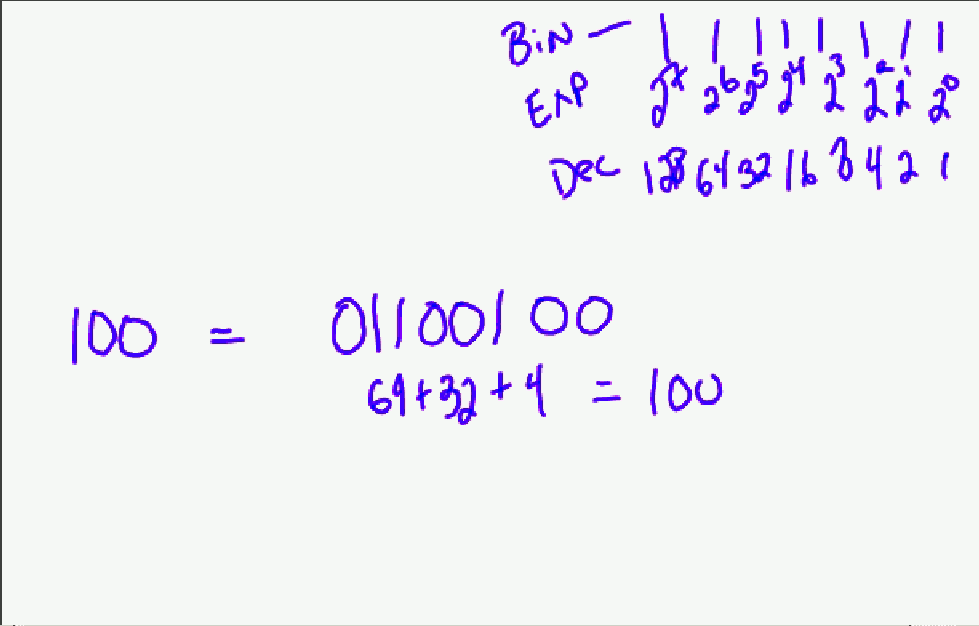 BiN — 1 1 1 1 1 1 1 1
EXP 2^7 2^6 2^5 2^4 2^3 2^2 2^1 2^0
Dec 128 64 32 16 8 4 2 1
100 = 01100100
64+32+4 = 100